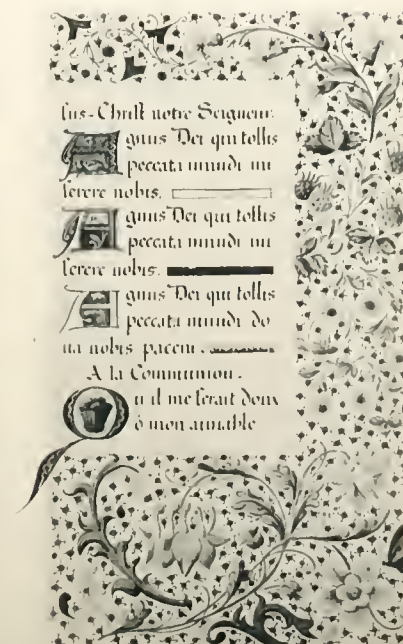 sus-Christ notre Seigneur.
Agnus Dei qui tollis
peccata mundi mi
serere nobis.
Agnus Dei qui tollis
peccata mundi mi
serere nobis.
Agnus Dei qui tollis
peccata mundi do
na nobis pacem.
A la Communion.
Qu il me serait doux
ô mon aimable